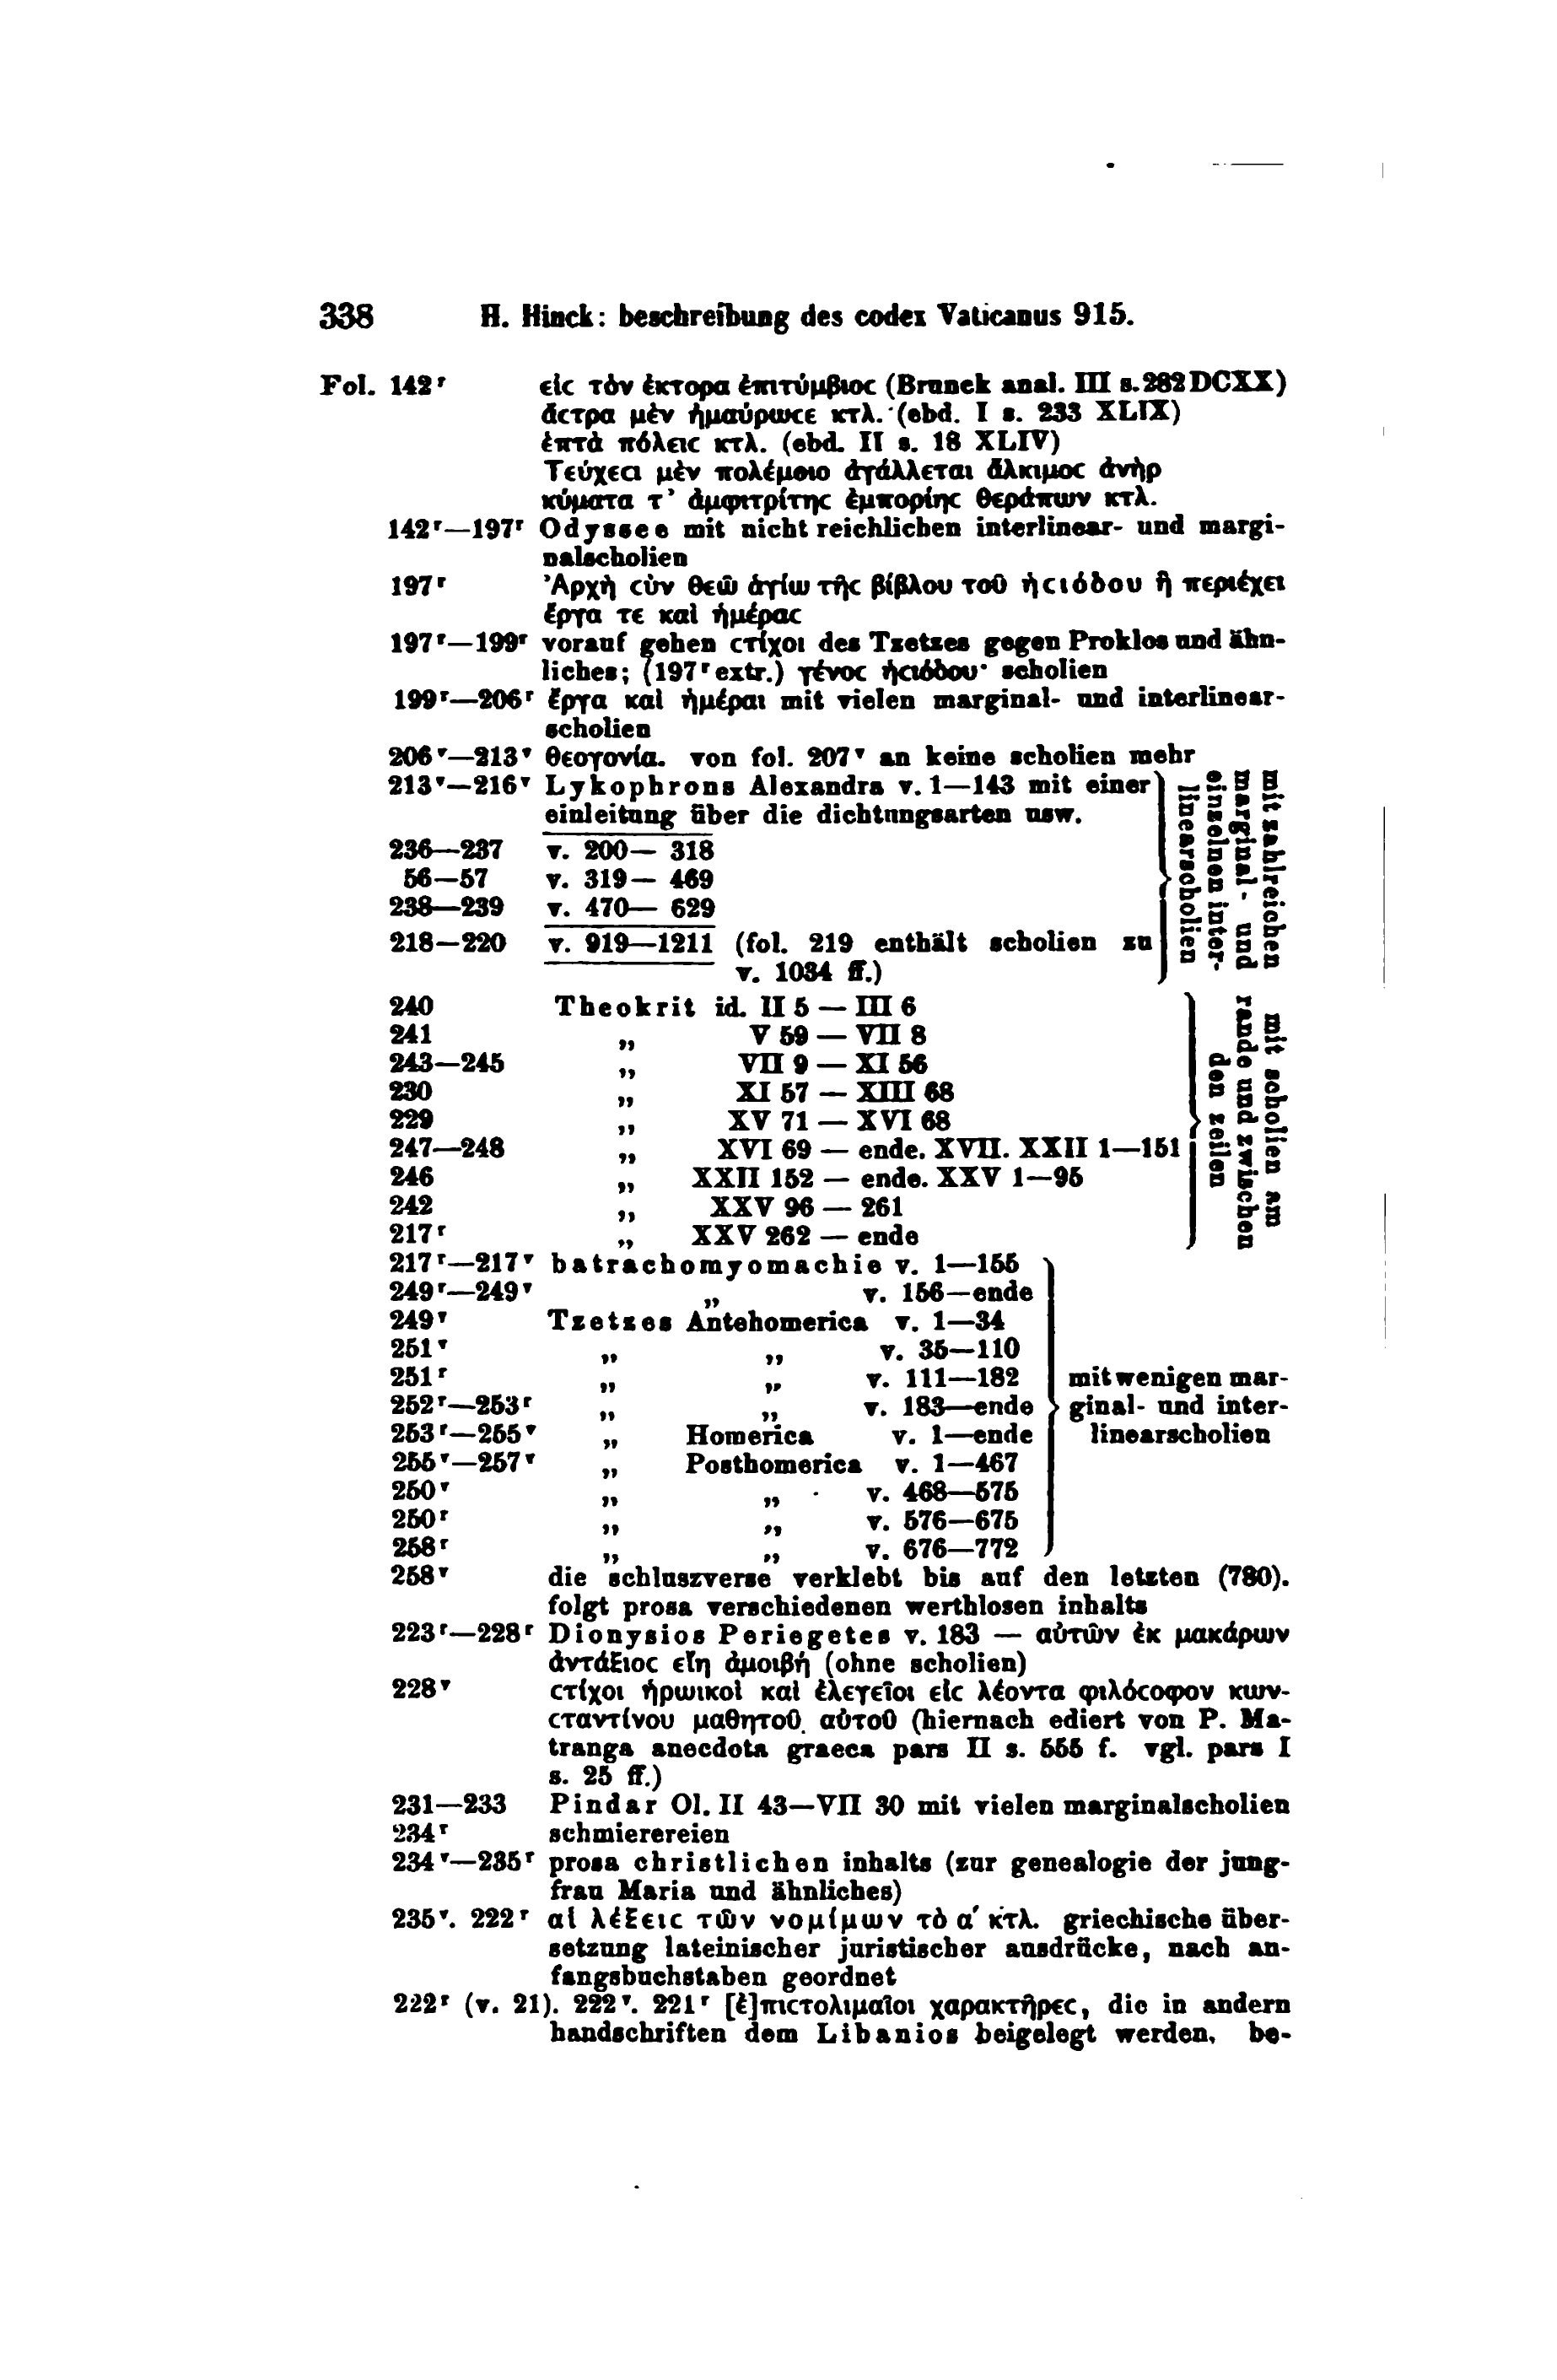 338 H. Hinck: beschreibung des codex Vaticanus 915.
Fol. 142ʳ εἰc τὸν ἑκτορα ἐπιτύμβιοc (Brunck anal. III s. 282 DCXX)
ἄcτρα μὲν ἠμαύρωcε κτλ. (ebd. I s. 233 XLIX)
ἑπτὰ πόλειc κτλ. (ebd. II s. 18 XLIV)
Τεύχεcι μὲν πολέμοιο ἀγάλλεται ἄλκιμοc ἀνὴρ
κύματα τ᾽ ἀμφιτρίτηc ἐμπορίηc θεράπων κτλ.
142ʳ—197ʳ Odyssee mit nicht reichlichen interlinear- und margi-
nalscholien
197ʳ Ἀρχὴ cὺν θεῶ ἁγίω τῆc βίβλου τοῦ ἡcιόδου ἣ περιέχει
ἔργα τε καὶ ἡμέραc
197ʳ—199ʳ vorauf gehen cτίχοι des Tzetzes gegen Proklos und ähn-
liches; (197ʳ extr.) γένοc ἡcιόδου· scholien
199ʳ—206ʳ ἔργα καὶ ἡμέραι mit vielen marginal- und interlinear-
scholien
206ᵛ—213ᵛ θεογονία. von fol. 207ᵛ an keine scholien mehr
213ᵛ—216ᵛ Lykophrons Alexandra v. 1—143 mit einer
einleitung über die dichtungsarten usw.
236—237 v. 200— 318
56—57 v. 319— 469
238—239 v. 470— 629
218—220 v. 919—1211 (fol. 219 enthält scholien zu
v. 1034 ff.)
mit zahlreichen
marginal- und
einzelnen inter-
linearscholien
240 Theokrit id. II 5 — III 6
241 „ V 59 — VII 8
243—245 „ VII 9 — XI 56
230 „ XI 57 — XIII 68
229 „ XV 71 — XVI 68
247—248 „ XVI 69 — ende. XVII. XXII 1—151
246 „ XXII 152 — ende. XXV 1—95
242 „ XXV 96 — 261
217ʳ „ XXV 262 — ende
mit scholien am
rande und zwischen
den zeilen
217ʳ—217ᵛ batrachomyomachie v. 1—155
249ʳ—249ᵛ „ v. 156—ende
249ᵛ Tzetzes Antehomerica v. 1—34
251ᵛ „ „ v. 35—110
251ʳ „ „ v. 111—182
252ʳ—253ʳ „ „ v. 183—ende
253ʳ—255ᵛ „ Homerica v. 1—ende
255ᵛ—257ᵛ „ Posthomerica v. 1—467
250ᵛ „ „ v. 468—575
250ʳ „ „ v. 576—675
258ʳ „ „ v. 676—772
mit wenigen mar-
ginal- und inter-
linearscholien
258ᵛ die schluszverse verklebt bis auf den letzten (780).
folgt prosa verschiedenen werthlosen inhalts
223ʳ—228ʳ Dionysios Periegetes v. 183 — αὐτῶν ἐκ μακάρων
ἀντάξιοc εἴη ἀμοιβή (ohne scholien)
228ᵛ cτίχοι ἡρωικοὶ καὶ ἐλεγεῖοι εἰc λέοντα φιλόcοφον κων-
cταντίνου μαθητοῦ αὐτοῦ (hiernach ediert von P. Ma-
tranga anecdota graeca pars II s. 555 f. vgl. pars I
s. 25 ff.)
231—233 Pindar Ol. II 43—VII 30 mit vielen marginalscholien
234ʳ schmierereien
234ᵛ—235ʳ prosa christlichen inhalts (zur genealogie der jung-
frau Maria und ähnliches)
235ᵛ. 222ʳ αἱ λέξειc τῶν νομίμων τὸ α΄ κτλ. griechische über-
setzung lateinischer juristischer ausdrücke, nach an-
fangsbuchstaben geordnet
222ʳ (v. 21). 222ᵛ. 221ʳ [ἐ]πιcτολιμαῖοι χαρακτῆρεc, die in andern
handschriften dem Libanios beigelegt werden, be-